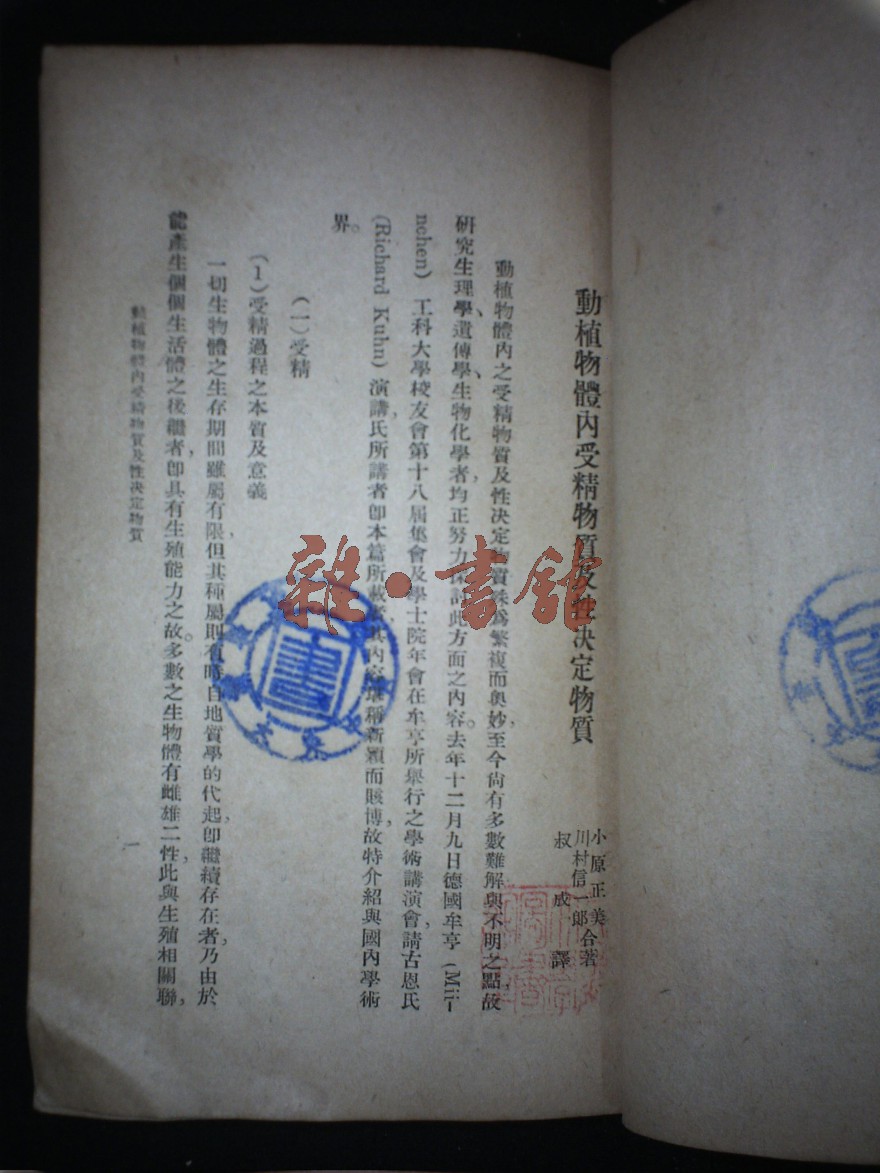 動植物體內受精物質及性決定物質
小原正美
川村信一郎合著
叔成譯
動植物體內之受精物質及性決定物質殊爲繁複而奧妙，至今尙有多數難解與不明之點，故
硏究生理學、遺傳學、生物化學者，均正努力探討此方面之內容。去年十二月九日德國牟亨（Mü-
nchen）工科大學校友會第十八屆集會及學士院年會在牟亨所舉行之學術講演會，請古恩氏
(Richard Kuhn) 演講，氏所講者卽本篇所載者，其內容堪稱新穎而賅博，故特介紹與國內學術
界。
（一）受精
（1）受精過程之本質及意義
一切生物體之生存期間雖屬有限，但其種屬則有時自地質學的代起，卽繼續存在者，乃由於
能產生個個生活體之後繼者，卽具有生殖能力之故。多數之生物體有雌雄二性，此與生殖相關聯，
動植物體內受精物質及性決定物質
一
雜·書館